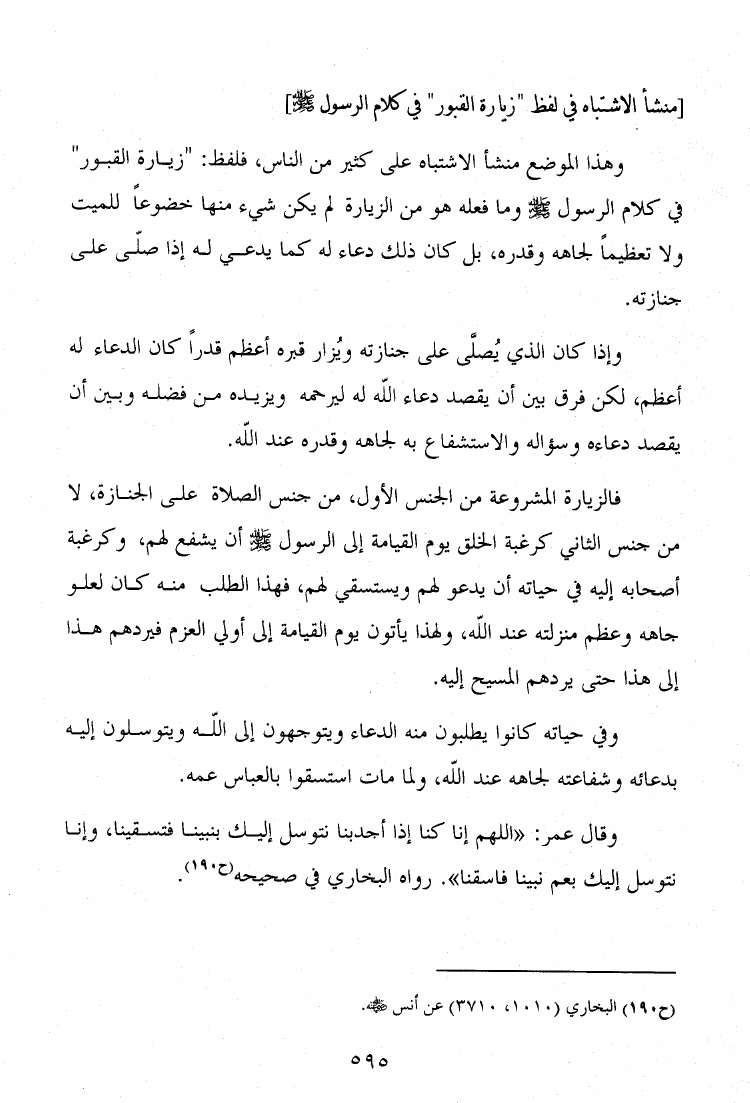 [منشأ الاشتباه في لفظ "زيارة القبور" في كلام الرسول ﷺ]
وهذا الموضع منشأ الاشتباه على كثير من الناس، فلفظ: "زيارة القبور"
في كلام الرسول ﷺ وما فعله هو من الزيارة لم يكن شيء منها خضوعاً للميت
ولا تعظيماً لجاهه وقدره، بل كان ذلك دعاء له كما يدعي له إذا صلّى على
جنازته.
وإذا كان الذي يُصلَّى على جنازته ويُزار قبره أعظم قدراً كان الدعاء له
أعظم، لكن فرق بين أن يقصد دعاء اللّه له ليرحمه ويزيده من فضله وبين أن
يقصد دعاءه وسؤاله والاستشفاع به لجاهه وقدره عند اللّه.
فالزيارة المشروعة من الجنس الأول، من جنس الصلاة على الجنازة، لا
من جنس الثاني كرغبة الخلق يوم القيامة إلى الرسول ﷺ أن يشفع لهم، وكرغبة
أصحابه إليه في حياته أن يدعو لهم ويستسقي لهم، فهذا الطلب منه كان لعلو
جاهه وعظم منزلته عند اللّه، ولهذا يأتون يوم القيامة إلى أولي العزم فيردهم هذا
إلى هذا حتى يردهم المسيح إليه.
وفي حياته كانوا يطلبون منه الدعاء ويتوجهون إلى اللّه ويتوسلون إليه
بدعائه وشفاعته لجاهه عند اللّه، ولما مات استسقوا بالعباس عمه.
وقال عمر: «اللهم إنا كنا إذا أجدبنا نتوسل إليك بنبينا فتسقينا، وإنا
نتوسل إليك بعم نبينا فاسقنا». رواه البخاري في صحيحه(ح١٩٠).
(ح١٩٠) البخاري (١٠١٠، ٣٧١٠) عن أنس ﵁.
٥٩٥